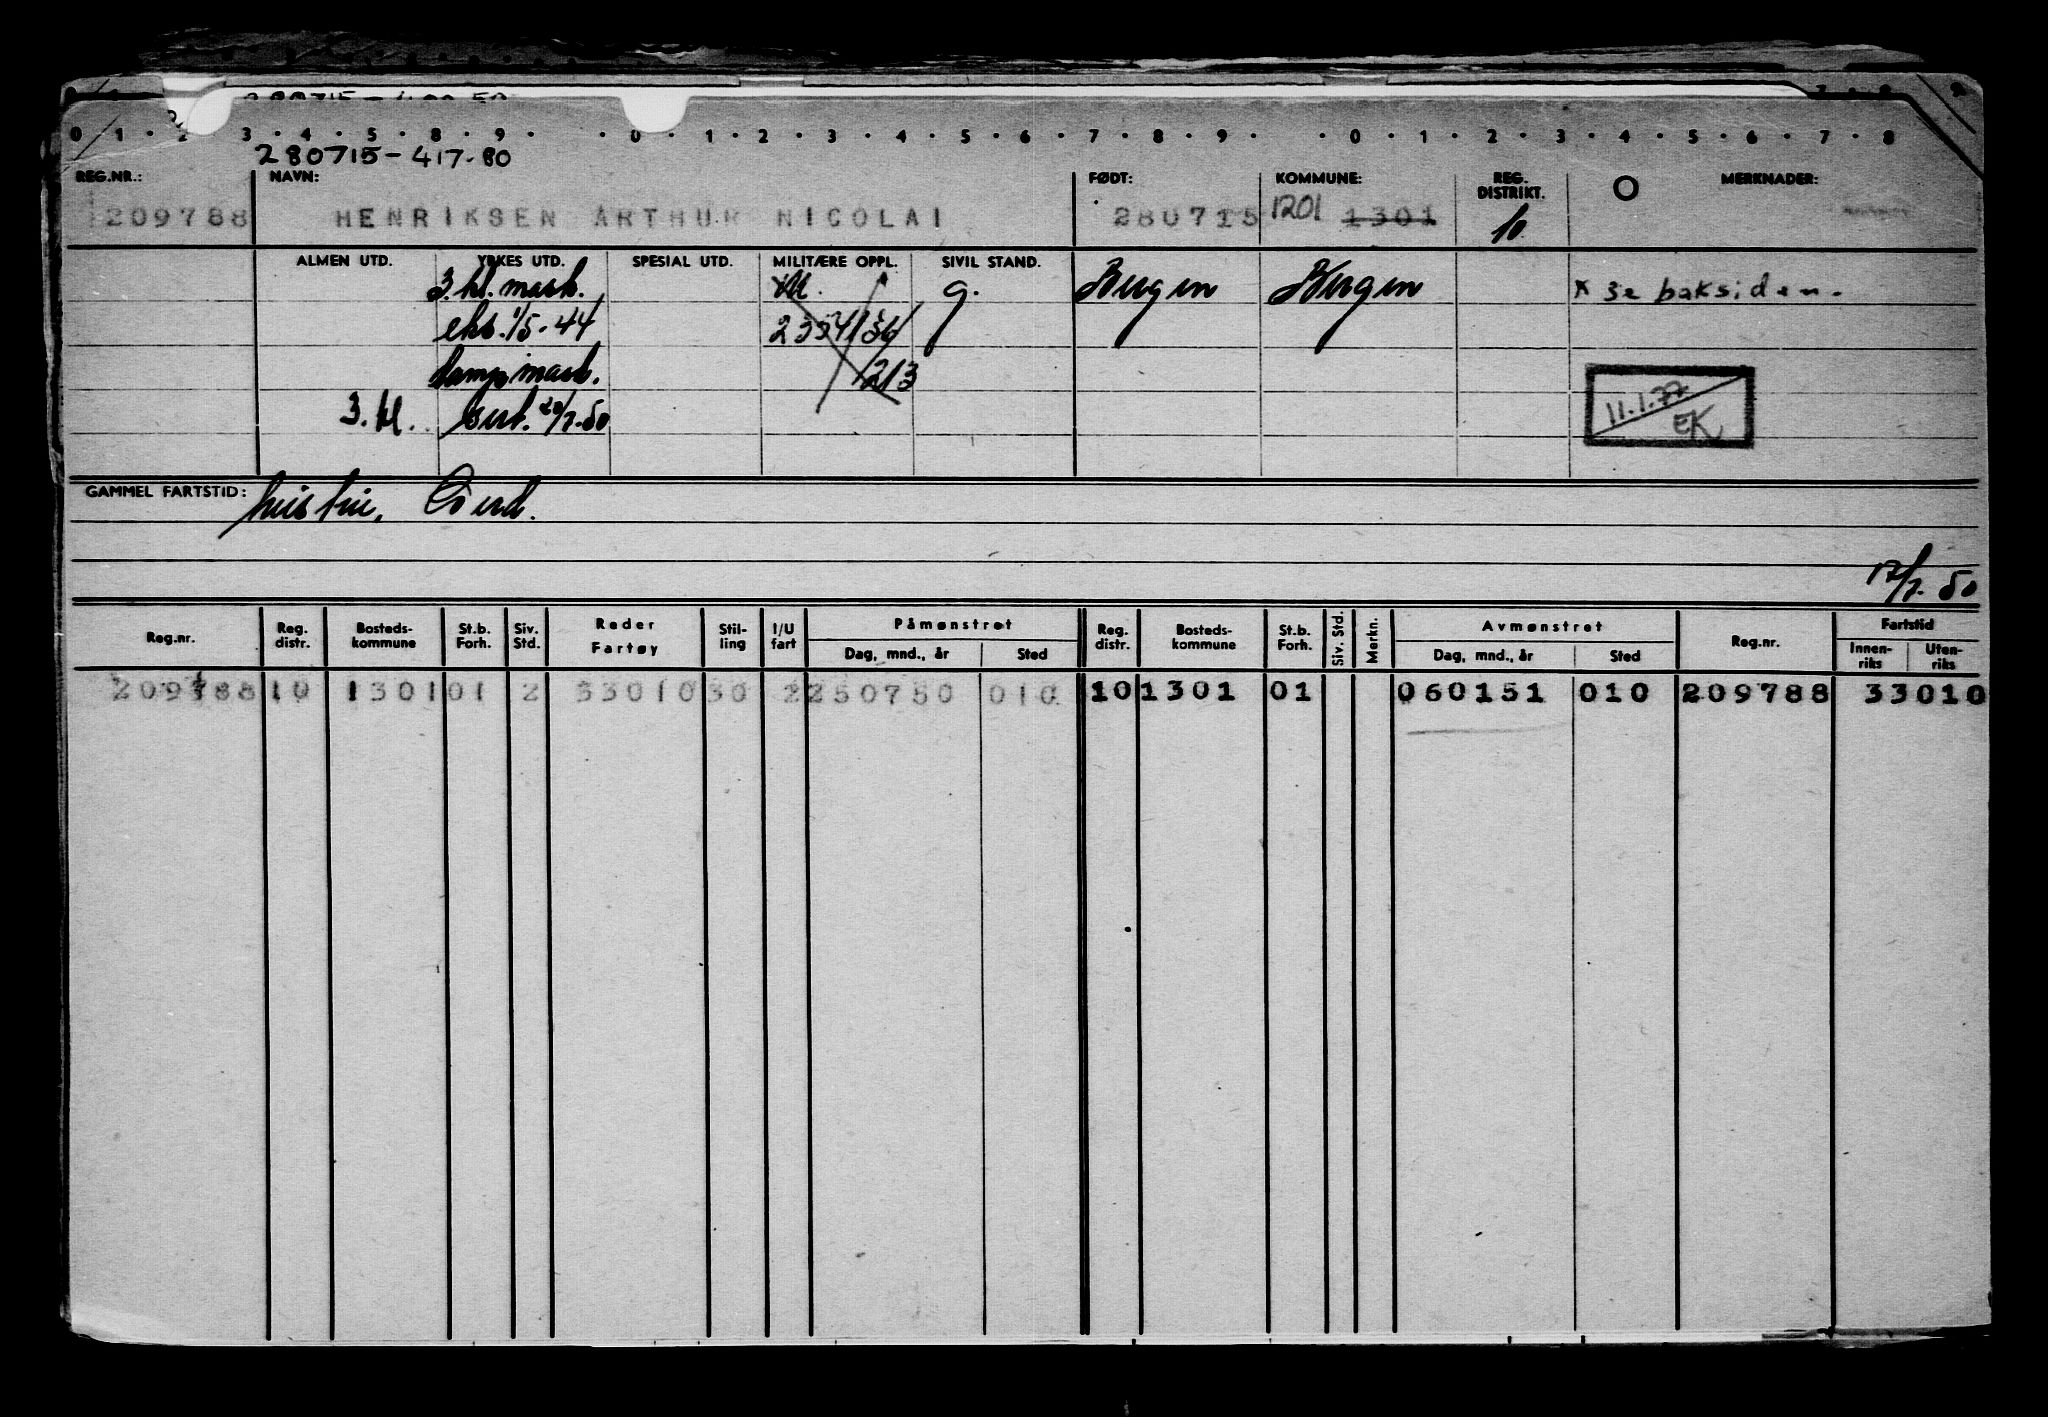 0 1 · 2 3 · 4 · 5 · 8 · 9 · · 0 · 1 · 2 · 3 · 4 · 5 · 6 · 7 · 8 · 9 · · 0 · 1 · 2 · 3 · 4 · 5 · 6 · 7 · 8
280715-417-80
REG.NR.: NAVN: FØDT: KOMMUNE: REG. DISTRIKT. MERKNADER:
209788 HENRIKSEN ARTHUR NICOLAI 280715 1201 1301 10
ALMEN UTD. YRKES UTD. SPESIAL UTD. MILITÆRE OPPL. SIVIL STAND.
3. kl. mask. M. g. Bergen Bergen x se baksiden.
eks. 1/5-44
damp mask. 213
11.1.77 EK
3. kl.
GAMMEL FARTSTID:
17/7-50
Reg.nr. Reg. distr. Bosteds-kommune St.b. Forh. Siv. Std. Reder Fartøy Stil-ling I/U fart Påmønstret Reg. distr. Bosteds-kommune St.b. Forh. Siv. Std. Merkn. Avmønstret Reg.nr. Fartstid
Dag, mnd., år Sted Dag, mnd., år Sted Innen-riks Uten-riks
209788 10 1301 01 2 33010 30 2 250750 010 10 1301 01 060151 010 209788 33010